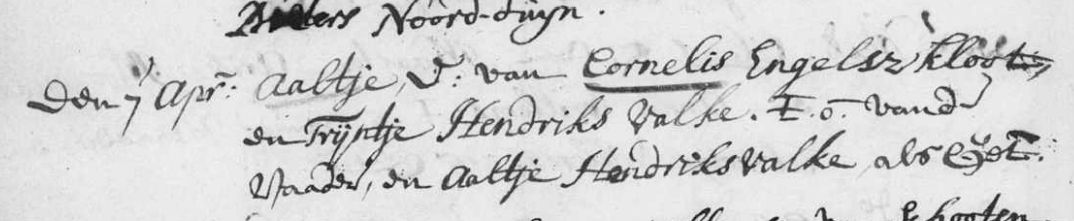 Pieters Noord-duÿn.
Den 7 Apr: Aaltje, D: van Cornelis Engelsz kloot,
en Trÿntje Hendriks Valke. T. o. vand
Vaader, en Aaltje Hendriks Valke, als Get.
Schooten